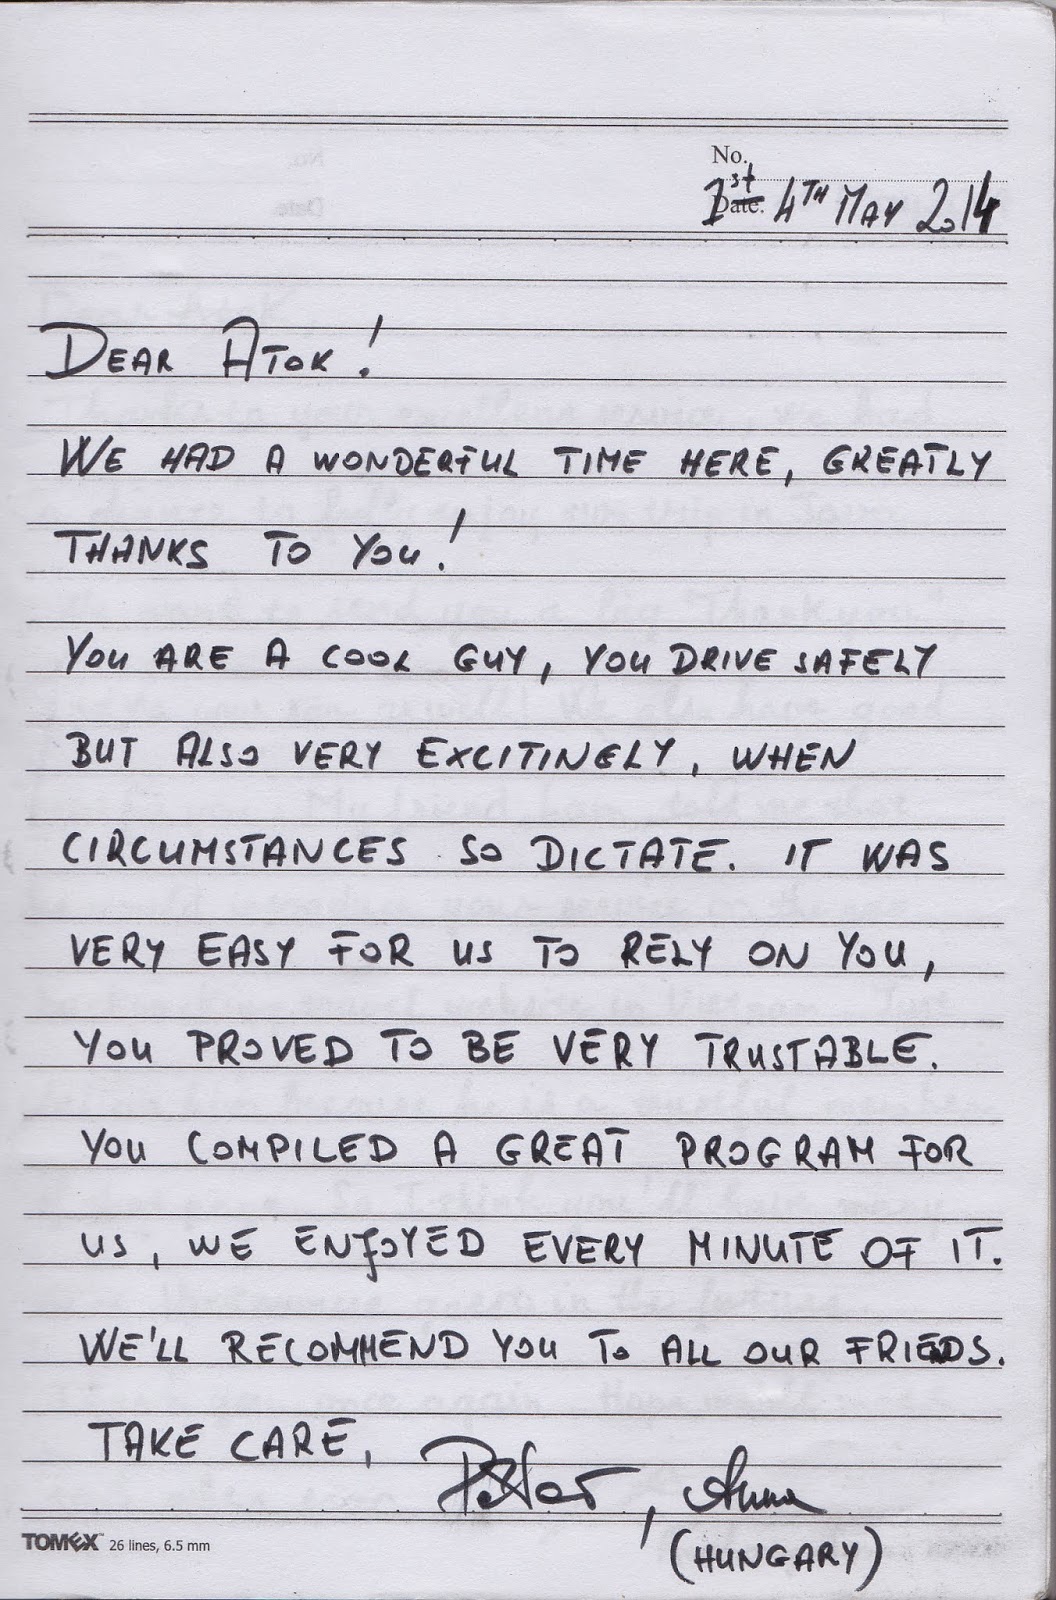 No.
1st Date: 4TH MAY 2014
DEAR ATOK!
WE HAD A WONDERFUL TIME HERE, GREATLY
THANKS TO YOU!
YOU ARE A COOL GUY, YOU DRIVE SAFELY
BUT ALSO VERY EXCITINGLY, WHEN
CIRCUMSTANCES SO DICTATE. IT WAS
VERY EASY FOR US TO RELY ON YOU,
YOU PROVED TO BE VERY TRUSTABLE.
YOU COMPILED A GREAT PROGRAM FOR
US, WE ENJOYED EVERY MINUTE OF IT.
WE'LL RECOMMEND YOU TO ALL OUR FRIENDS.
TAKE CARE,
Péter, Anna
(HUNGARY)
TOMEX™ 26 lines, 6.5 mm